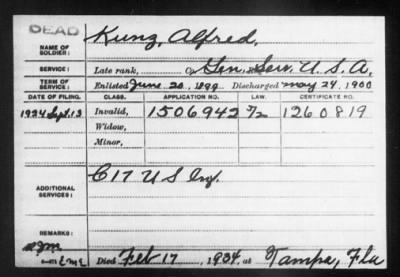 DEAD
NAME OF SOLDIER: Kunz, Alfred.
SERVICE: Late rank, Gen. Serv. U. S. A.
TERM OF SERVICE: Enlisted June 20, 1899 Discharged May 24, 1900
DATE OF FILING. CLASS. APPLICATION NO. LAW. CERTIFICATE NO.
1924 Sept. 13 Invalid, 1506942 1260819
Widow,
Minor,
ADDITIONAL SERVICES: C 17 U S Inf.
REMARKS:
Died Feb 17, 1934, at Tampa, Fla